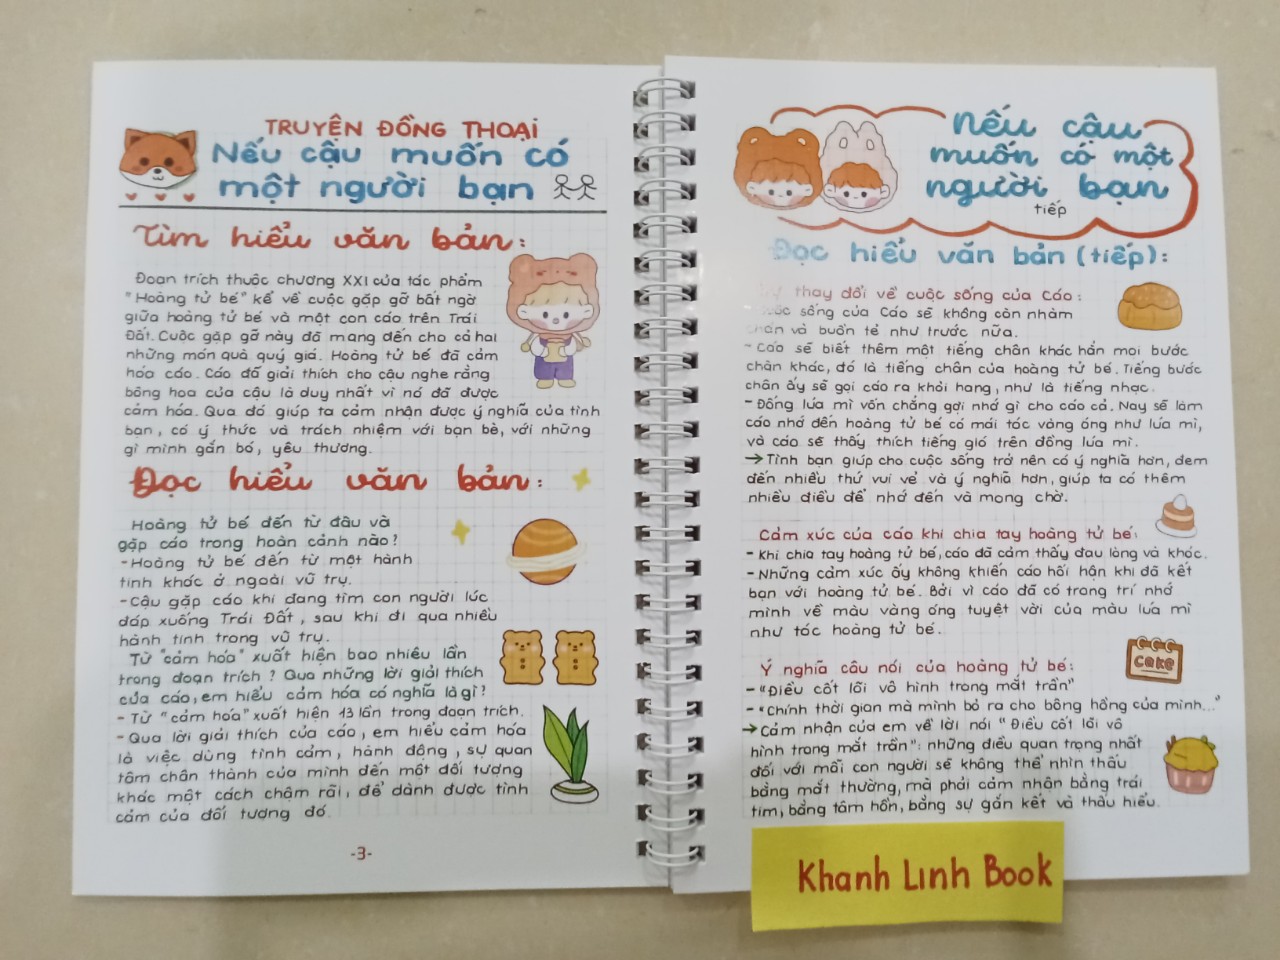 TRUYỆN ĐỒNG THOẠI
Nếu cậu muốn có
một người bạn
Tìm hiểu văn bản:
Đoạn trích thuộc chương XXI của tác phẩm
"Hoàng tử bé" kể về cuộc gặp gỡ bất ngờ
giữa hoàng tử bé và một con cáo trên Trái
Đất. Cuộc gặp gỡ này đã mang đến cho cả hai
những món quà quý giá. Hoàng tử bé đã cảm
hóa cáo. Cáo đã giải thích cho cậu nghe rằng
bông hoa của cậu là duy nhất vì nó đã được
cảm hóa. Qua đó giúp ta cảm nhận được ý nghĩa của tình
bạn, có ý thức và trách nhiệm với bạn bè, với những
gì mình gắn bó, yêu thương.
Đọc hiểu văn bản:
Hoàng tử bé đến từ đâu và
gặp cáo trong hoàn cảnh nào?
- Hoàng tử bé đến từ một hành
tinh khác ở ngoài vũ trụ.
- Cậu gặp cáo khi đang tìm con người lúc
đáp xuống Trái Đất, sau khi đi qua nhiều
hành tinh trong vũ trụ.
Từ "cảm hóa" xuất hiện bao nhiêu lần
trong đoạn trích? Qua những lời giải thích
của cáo, em hiểu cảm hóa có nghĩa là gì?
- Từ "cảm hóa" xuất hiện 13 lần trong đoạn trích.
- Qua lời giải thích của cáo, em hiểu cảm hóa
là việc dùng tình cảm, hành động, sự quan
tâm chân thành của mình đến một đối tượng
khác một cách chậm rãi, để dành được tình
cảm của đối tượng đó.
-3-
Nếu cậu
muốn có một
người bạn
tiếp
Đọc hiểu văn bản (tiếp):
thay đổi về cuộc sống của Cáo:
sống của Cáo sẽ không còn nhàm
chán và buồn tẻ như trước nữa.
- Cáo sẽ biết thêm một tiếng chân khác hẳn mọi bước
chân khác, đó là tiếng chân của hoàng tử bé. Tiếng bước
chân ấy sẽ gọi cáo ra khỏi hang, như là tiếng nhạc.
- Đồng lúa mì vốn chẳng gợi nhớ gì cho cáo cả. Nay sẽ làm
cáo nhớ đến hoàng tử bé có mái tóc vàng óng như lúa mì,
và cáo sẽ thấy thích tiếng gió trên đồng lúa mì.
→ Tình bạn giúp cho cuộc sống trở nên có ý nghĩa hơn, đem
đến nhiều thú vui vẻ và ý nghĩa hơn, giúp ta có thêm
nhiều điều để nhớ đến và mong chờ.
Cảm xúc của cáo khi chia tay hoàng tử bé:
- Khi chia tay hoàng tử bé, cáo đã cảm thấy đau lòng và khóc.
- Những cảm xúc ấy không khiến cáo hối hận khi đã kết
bạn với hoàng tử bé. Bởi vì cáo đã có trong trí nhớ
mình về màu vàng óng tuyệt vời của màu lúa mì
như tóc hoàng tử bé.
cake
Ý nghĩa câu nói của hoàng tử bé:
- "Điều cốt lõi vô hình trong mắt trần"
- "Chính thời gian mà mình bỏ ra cho bông hồng của mình..."
→ Cảm nhận của em về lời nói "Điều cốt lõi vô
hình trong mắt trần": những điều quan trọng nhất
đối với mỗi con người sẽ không thể nhìn thấu
bằng mắt thường, mà phải cảm nhận bằng trái
tim, bằng tâm hồn, bằng sự gắn kết và thấu hiểu.
Khanh Linh Book